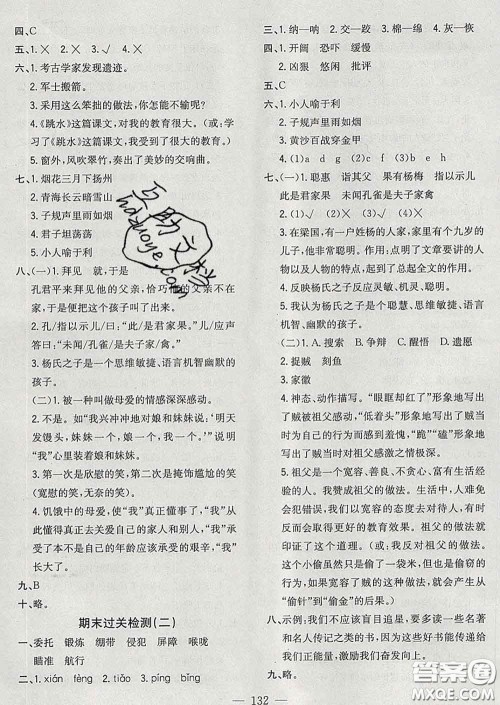 四、C
五、1. ╳ 2. ╳ 3. √ 4. ╳
六、1. 考古学家发现遗迹。
2. 军士搬箭。
3. 采用这么笨拙的做法,怎能不输呢?
4. 《跳水》这篇课文,对我的教育很大。(或:学
习了《跳水》这篇课文,我受到了很大的教育。)
5. 窗外,风吹翠竹,奏出了美妙的交响曲。
七、1. 烟花三月下扬州
2. 青海长云暗雪山
3. 子规声里雨如烟
4. 君子坦荡荡
5. 小人喻于利
八、(一)1. 拜见 就,于是
孔君平来拜见他的父亲,恰巧他的父亲不在
家,于是便把这个孩子叫了出来。
2. 孔/指以示儿/曰:“此是君家果。”儿/应声
答曰:“未闻/孔雀/是夫子家/禽。”
3. 杨氏之子是一个思维敏捷、语言机智幽默的
孩子。
(二)1. 被一种叫做母爱的情感深深感动。
2. 不是。如“我兴冲冲地对母亲和妹妹说:‘明天
发馒头,妹妹一个,我一个,您一个。’”说明
“我”的心里装着娘和妹妹。
3. 第一次是欣慰的笑,第二次是掩饰尴尬的笑
(宽慰的笑,无奈的笑)。
4. 饥饿中的母爱使“我”真正成为了男子汉,“我”从
此懂得真正去关爱自己的家人和别人,“我”
从此承担了自己的年龄应该承受的艰辛,“我”
长大了。
九、B
十、略。
期末过关检测(二)
一、委托 锻炼 绷带 侵犯 屏障 喉咙
瞄准 航行
二、1. xián tèng 2. tiǎo 3. píng bǐng
三、1. 纳—呐 2. 交—跤 3. 棉—绵 4. 灰—恢
四、1. 开阔 恐吓 缓慢
2. 凶狠 悠闲 批评
五、C
六、1. 小人喻于利
2. 子规声里雨如烟
3. 黄沙百战穿金甲
4. (1)a d g (2)c f (3)b e
七、(一)1. 聪惠 诣其父 果有杨梅 指以示儿
此是君家果 未闻孔雀是夫子家禽
2. (1)√ (2)╳ (3)╳ (4)√
3. 在梁国,有一户姓杨的人家,家里有个九岁的
儿子,他非常聪明。(作用:)点明了文章要讲的人物
以及人物的特点,起到总起全文的作用。
4. 反映杨氏之子是个聪慧、思维敏捷、语言机
智、幽默的孩子。
(二)1. A. 搜寻 B. 争辩 C. 醒悟 D. 遗愿
2. 捉贼 刻鱼
3. 家徽
4. 神态、动作描写。“眼眶却红了”形象地写
出了贼被祖父感动,“低着头”形象地写出了贼当时
为自己的行为而感到羞愧,“跪”形象地描写了
当时贼对祖父感激之情极深。
5. 祖父是一个宽容、善良、不贪心、有家族责任
感的人。我赞成祖父的做法。生活中,人难免会
犯错误,我们以一颗宽容的心去对待,有时
反而会起到更好的教育效果。祖父的做法印
证了这个道理。(或:我反对祖父的做法。他
这么做,虽然当时只偷了一袋米,但也是犯
错,祖父一味地纵容,这样的做法,就会从
“偷针”到“偷金”的后果。)
八、示例:我们不应该盲目追星,要多读一些名著
和名人传记,多去了解一些对社会有突出贡献
的人,因为这些好书能传递给我们正能量,能
激励我们奋发向上。
九、略。
132
答案圈
MXQE.COM